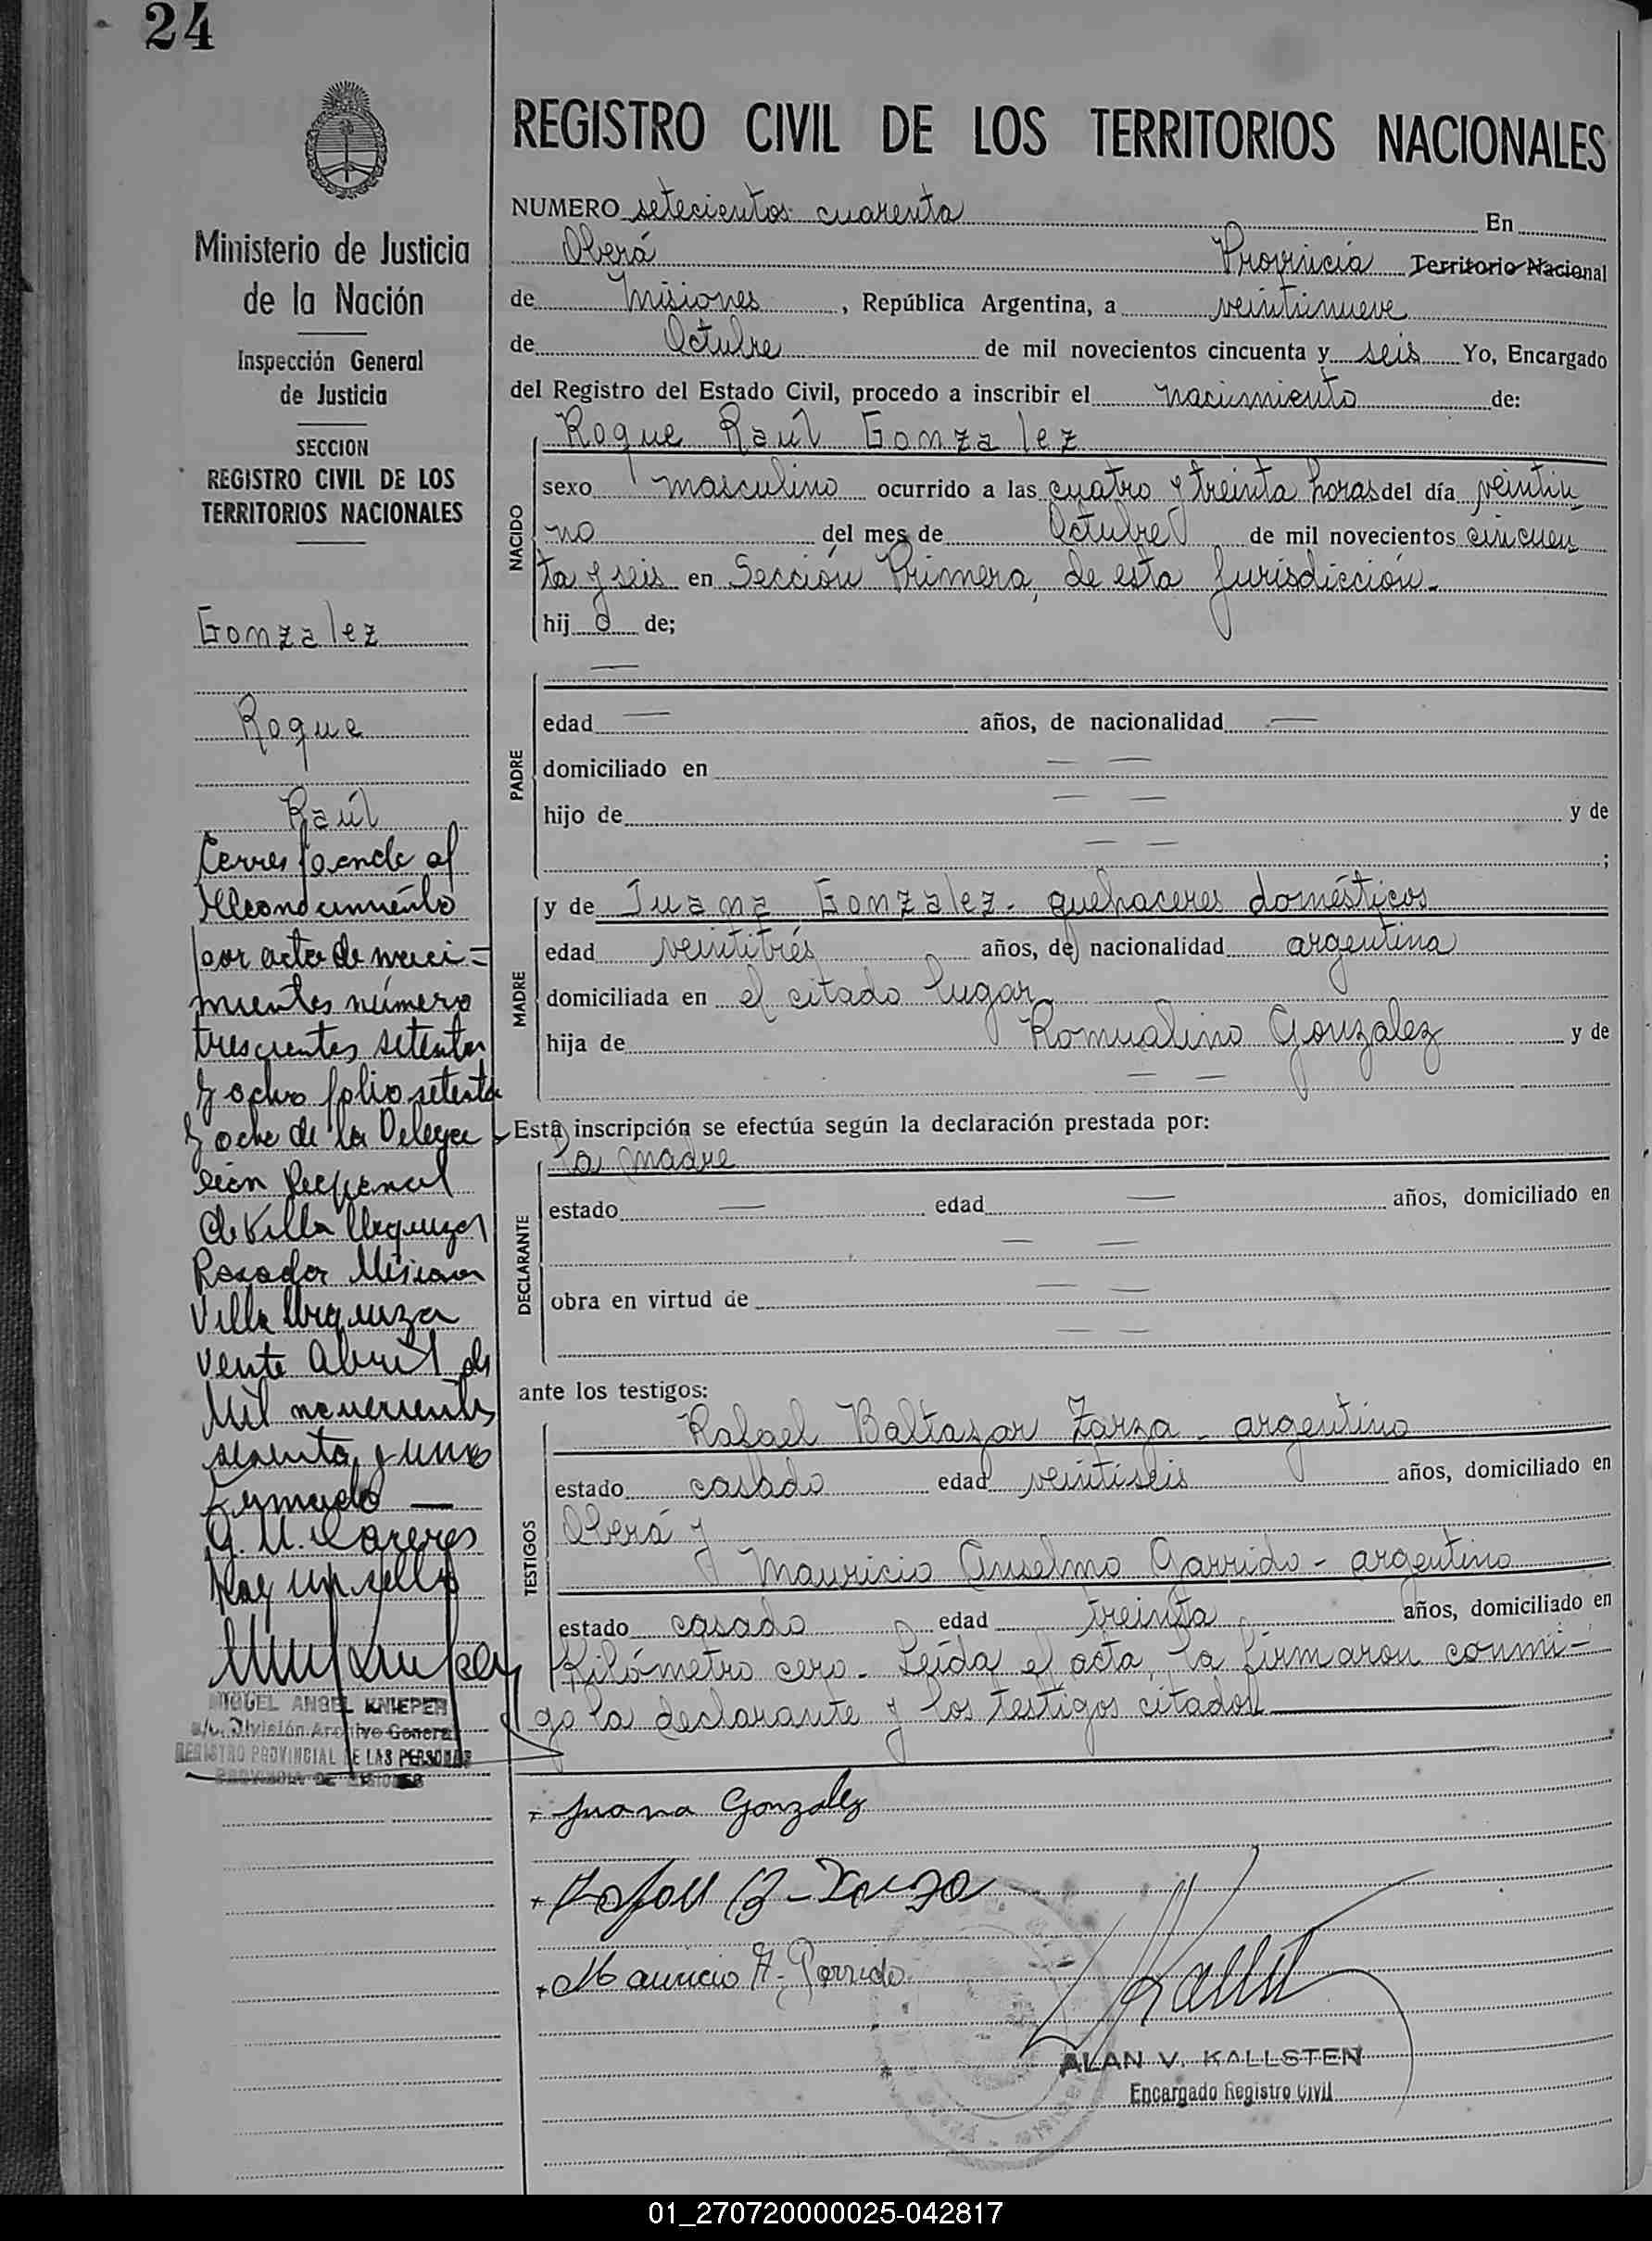 24
REGISTRO CIVIL DE LOS TERRITORIOS NACIONALES
Ministerio de Justicia
de la Nación
Inspección General
de Justicia
SECCION
REGISTRO CIVIL DE LOS
TERRITORIOS NACIONALES
Gonzalez
Roque
Raúl
Corresponde al
Reconocimiento
por acta de naci=
mientos número
trescientos setenta
y ocho folio setenta
y ocho de la Delega
ción
de Villa Urquiza
Posadas Misiones
Villa Urquiza
veinte Abril de
Mil novecientos
y uno
Firmado —
Hay un sello
MIGUEL ANGEL KNIEPER
a/c. División Archivo General
REGISTRO PROVINCIAL DE LAS PERSONAS
PROVINCIA DE MISIONES
NUMERO setecientos cuarenta En
Oberá Provincia Territorio Nacional
de Misiones, República Argentina, a veintinueve
de Octubre de mil novecientos cincuenta y seis Yo, Encargado
del Registro del Estado Civil, procedo a inscribir el nacimiento de:
NACIDO
Roque Raúl Gonzalez
sexo masculino ocurrido a las cuatro y treinta horas del día veintiu
no del mes de Octubre de mil novecientos cincuen
ta y seis en Sección Primera, de esta Jurisdicción.-
hij o de;
PADRE
—
edad — años, de nacionalidad —
domiciliado en — —
hijo de — — y de
— — ;
MADRE
y de Juana Gonzalez.- quehaceres domésticos
edad veintitrés años, de nacionalidad argentina
domiciliada en el citado lugar
hija de Romualino Gonzalez y de
— —
Esta inscripción se efectúa según la declaración prestada por:
DECLARANTE
la madre
estado — edad — años, domiciliado en
— —
obra en virtud de — —
— —
ante los testigos:
TESTIGOS
Rafael Baltazar Zarza - argentino
estado casado edad veintiseis años, domiciliado en
Oberá y
Mauricio Anselmo Garrido - argentino
estado casado edad treinta años, domiciliado en
Kilómetro cero.- Leída el acta, la firmaron conmi=
go la declarante y los testigos citados
+ Juana Gonzalez
+ Rafael B - Zarza
+ Mauricio A. Garrido
Kallsten
ALAN V. KALLSTEN
Encargado Registro Civil
01_270720000025-042817